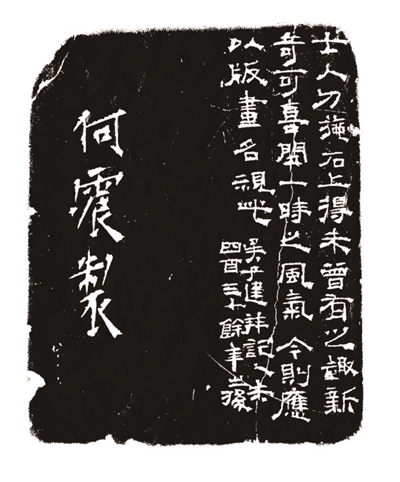 士人刀施石上得未曾有之趣新
奇可喜開一時之風氣今則應
以版畫名視此
吳子建并記
四百三十餘年後
何震製